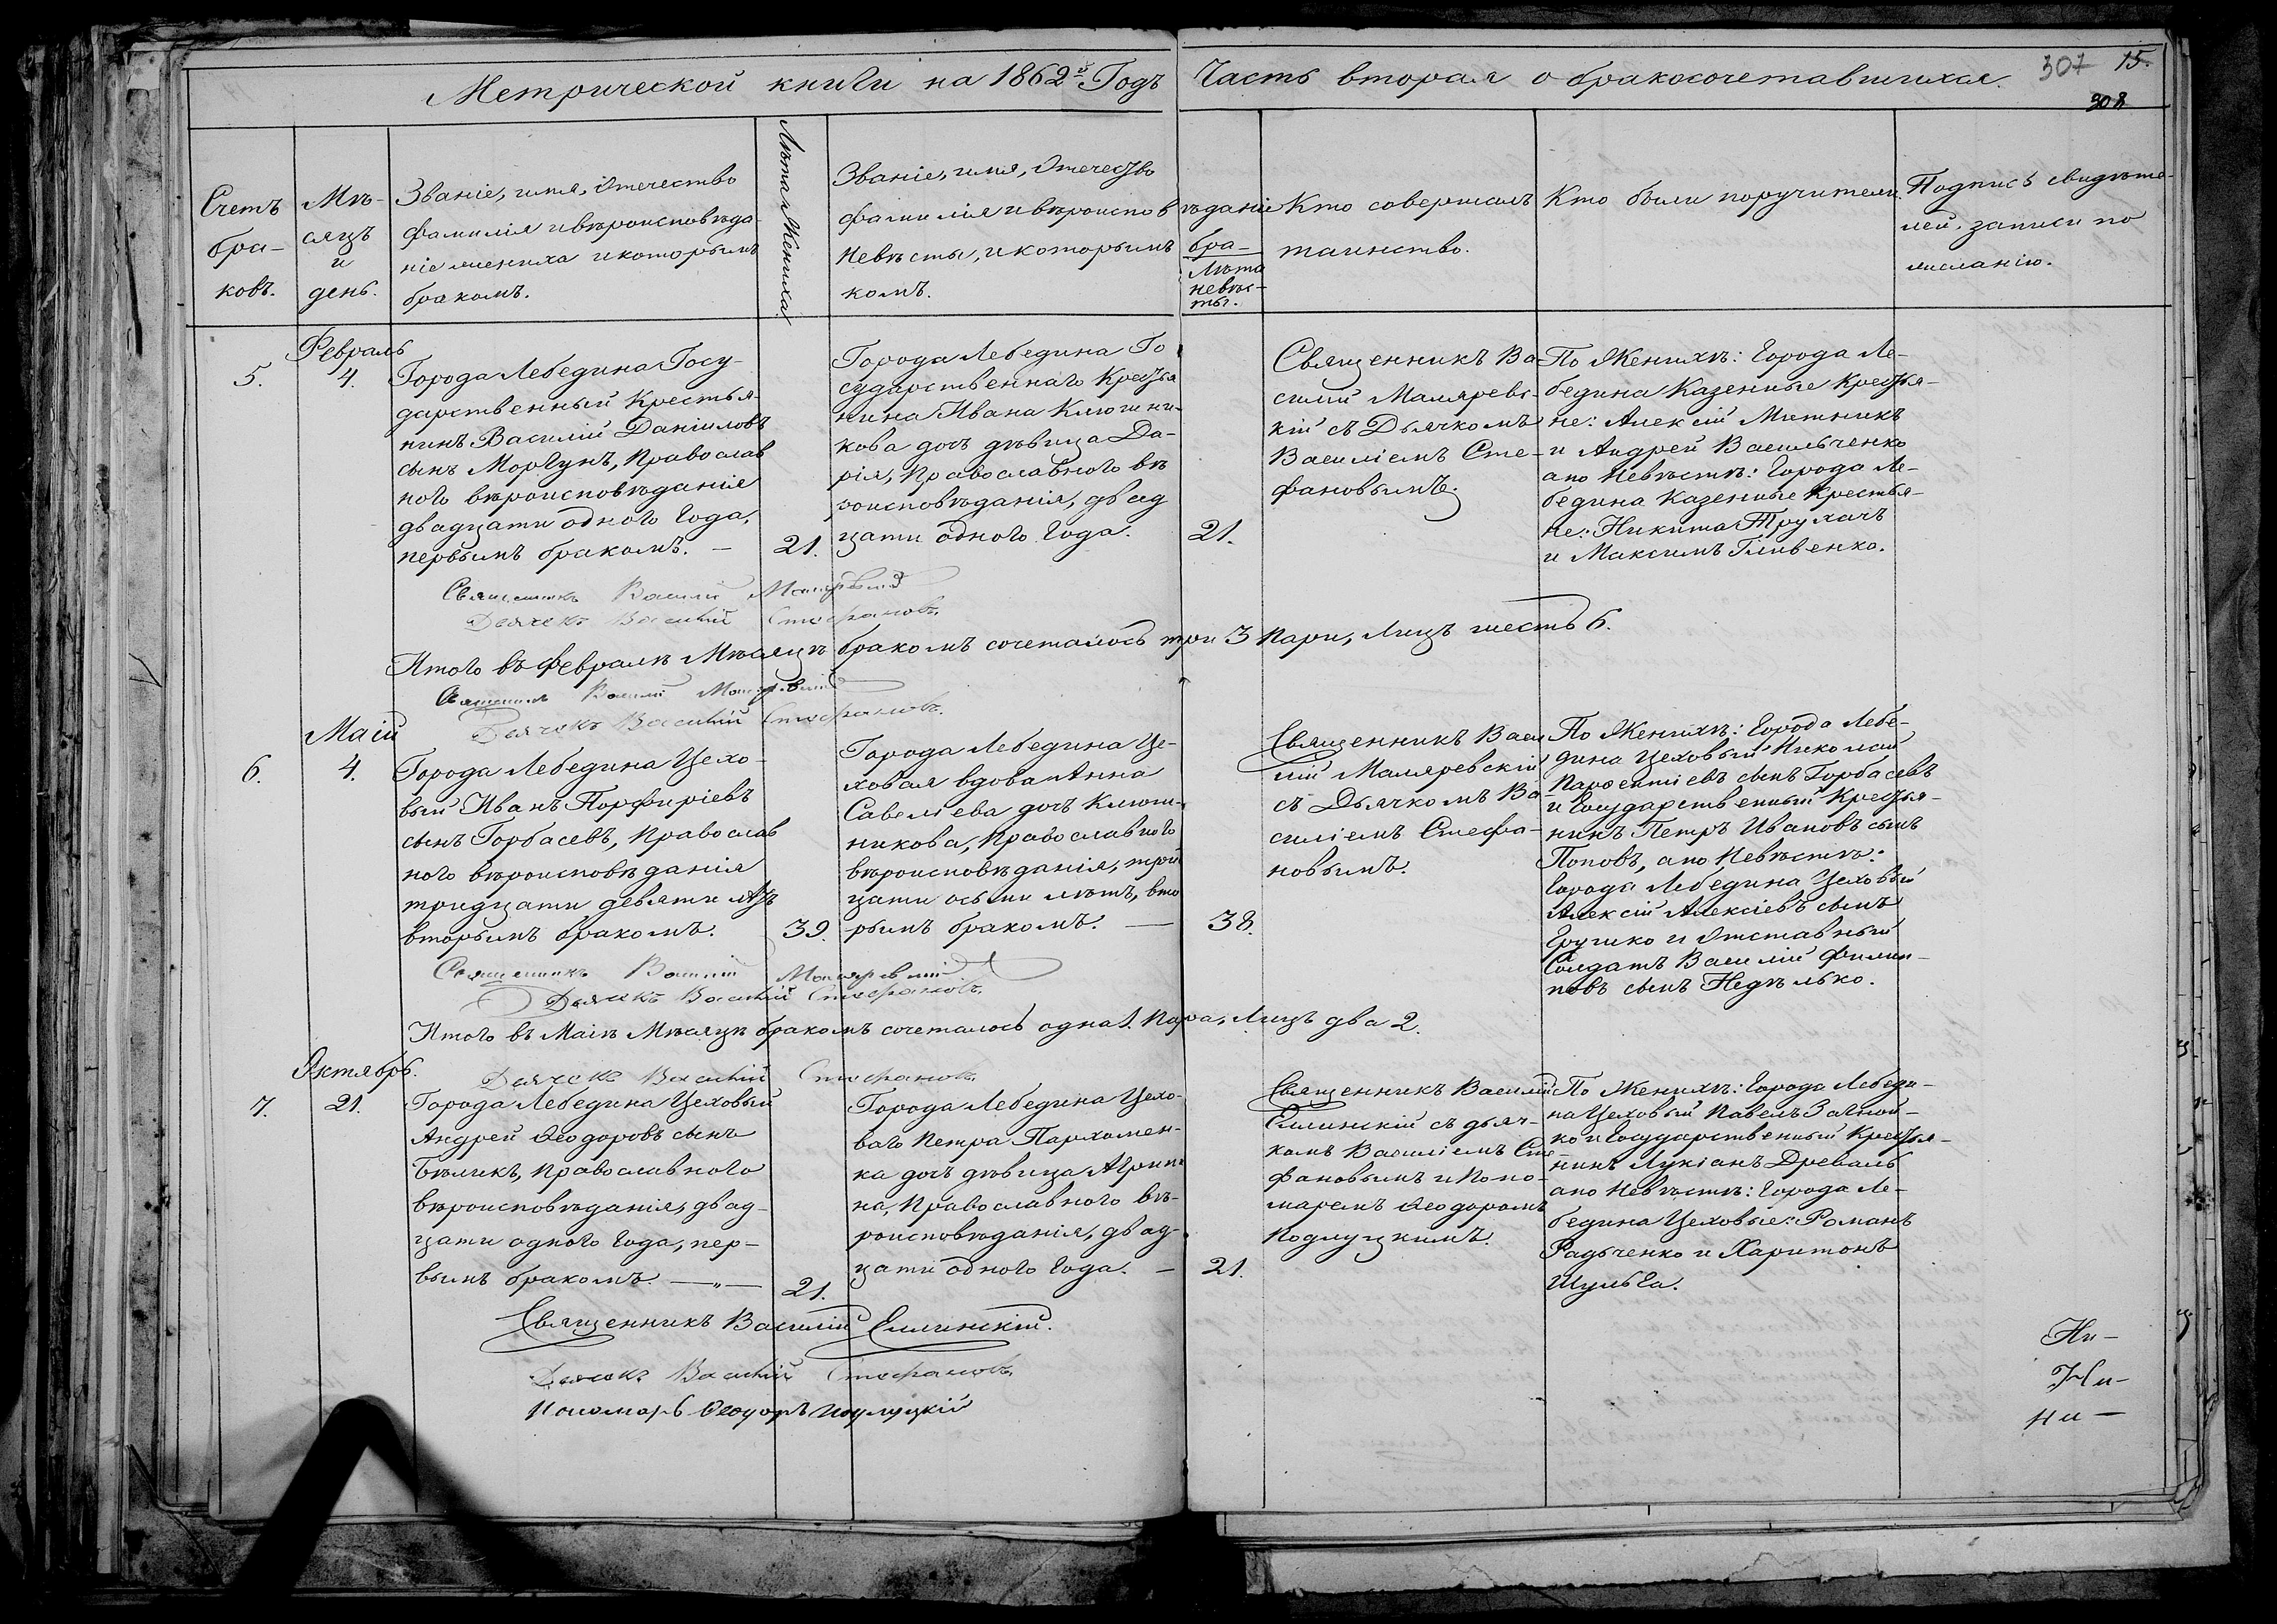 Метрической книги на 1862й Годъ Часть вторая о бракосочетавшихся.
307 15.
308
Счетъ
бра-
ковъ.
Мѣ-
сяцъ
и
день.
Званіе, имя, отечество
фамилія и вѣроисповѣда
ніе жениха и которымъ
бракомъ.
Лѣта Жениха
Званіе, имя, Отечество
фамилія и вѣроисповѣданіе
Невѣсты, и которымъ бра-
комъ.
Лѣта
невѣс-
ты.
Кто совершалъ
таинство.
Кто были поручители.
Подпись свидѣте-
лей записи по
желанію.
5.
Февраль
4.
Города Лебедина Госу-
дарственный Крестья-
нинъ Василій Даніиловъ
сынъ Моргунъ, Православ
ного вѣроисповѣданія
двадцати одного Года,
первымъ бракомъ. —
21.
Города Лебедина Го
сударственнаго Крестья
нина Ивана Ключни-
кова дочь дѣвица Да-
рія, Православного вѣ
роисповѣданія, двад
цати одного Года.
21.
Священникъ Ва-
силій Маляревс-
кій съ Дьячкомъ
Василіемъ Сте-
фановымъ.
По Женихѣ: Города Ле-
бедина Казенные Крестья-
не: Алексій Мятникъ
и Андрей Васильченко
а по Невѣстѣ: Города Ле-
бедина Казенные Крестья-
не: Никита Трухачъ
и Максимъ Гливенко.
Священникъ Василій Маляревскій
Дьячекъ Василій Стефановъ
Итого въ Февралѣ Мѣсяцѣ бракомъ сочеталось три 3 пари, Лицъ шесть 6.
Священникъ Василій Маляревскій
Дьячекъ Василій Стефановъ.
6.
Маій
4.
Города Лебедина Цехо-
вый Иванъ Порфиріевъ
сынъ Горбасевъ, Православ
ного вѣроисповѣданія
тридцати девяти лѣтъ
вторымъ бракомъ.
39.
Города Лебедина Це-
ховая вдова Анна
Савеліева дочь Ключ-
никова, Православного
вѣроисповѣданія, трид
цати осьми лѣтъ, вто
рымъ бракомъ. —
38.
Священникъ Васи
лій Маляревскій
съ Дьячкомъ Ва-
силіемъ Стефа-
новымъ.
По Женихѣ: Города Лебе-
дина Цеховый Николай
сынъ Горбасевъ
и Государственный Крестья-
нинъ Петръ Ивановъ сынъ
Поповъ, а по Невѣстѣ:
Города Лебедина Цеховый
Алексій Алексіевъ сынъ
Грушко и Отставный
Солдатъ Василій Филип-
повъ сынъ Недѣлько.
Священникъ Василій Маляревскій
Дьячекъ Василій Стефановъ
Итого въ Маіѣ Мѣсяцѣ бракомъ сочеталось одна 1. Пара, Лицъ два 2.
Дьячекъ Василій Стефановъ
7.
Октябрь.
21.
Города Лебедина Цеховый
Андрей Ѳеодоровъ сынъ
Бѣликъ, Православного
вѣроисповѣданія, двад-
цати одного Года, пер-
вымъ бракомъ. —„—
21.
Города Лебедина Цехо-
ваго Петра Пархомен-
ка дочь дѣвица Агрипи
на, Православного вѣ-
роисповѣданія, двад-
цати одного Года. —
21.
Священникъ Василій
Еллинскій съ дьяч-
комъ Василіемъ Сте
фановымъ и Поно-
маремъ Ѳеодоромъ
Подлуцкимъ.
По Женихѣ: Города Лебеди-
на Цеховый Павелъ Загной-
ко и Государственный Крестья-
нинъ Лукіанъ Древаль
а по Невѣстѣ: Города Ле-
бедина Цеховые: Романъ
Радьченко и Харитонъ
Шульга.
Священникъ Василій Еллинскій.
Дьячекъ Василій Стефановъ
Пономарь Ѳеодоръ Подлуцкій
Ни-
Ни-
ни-